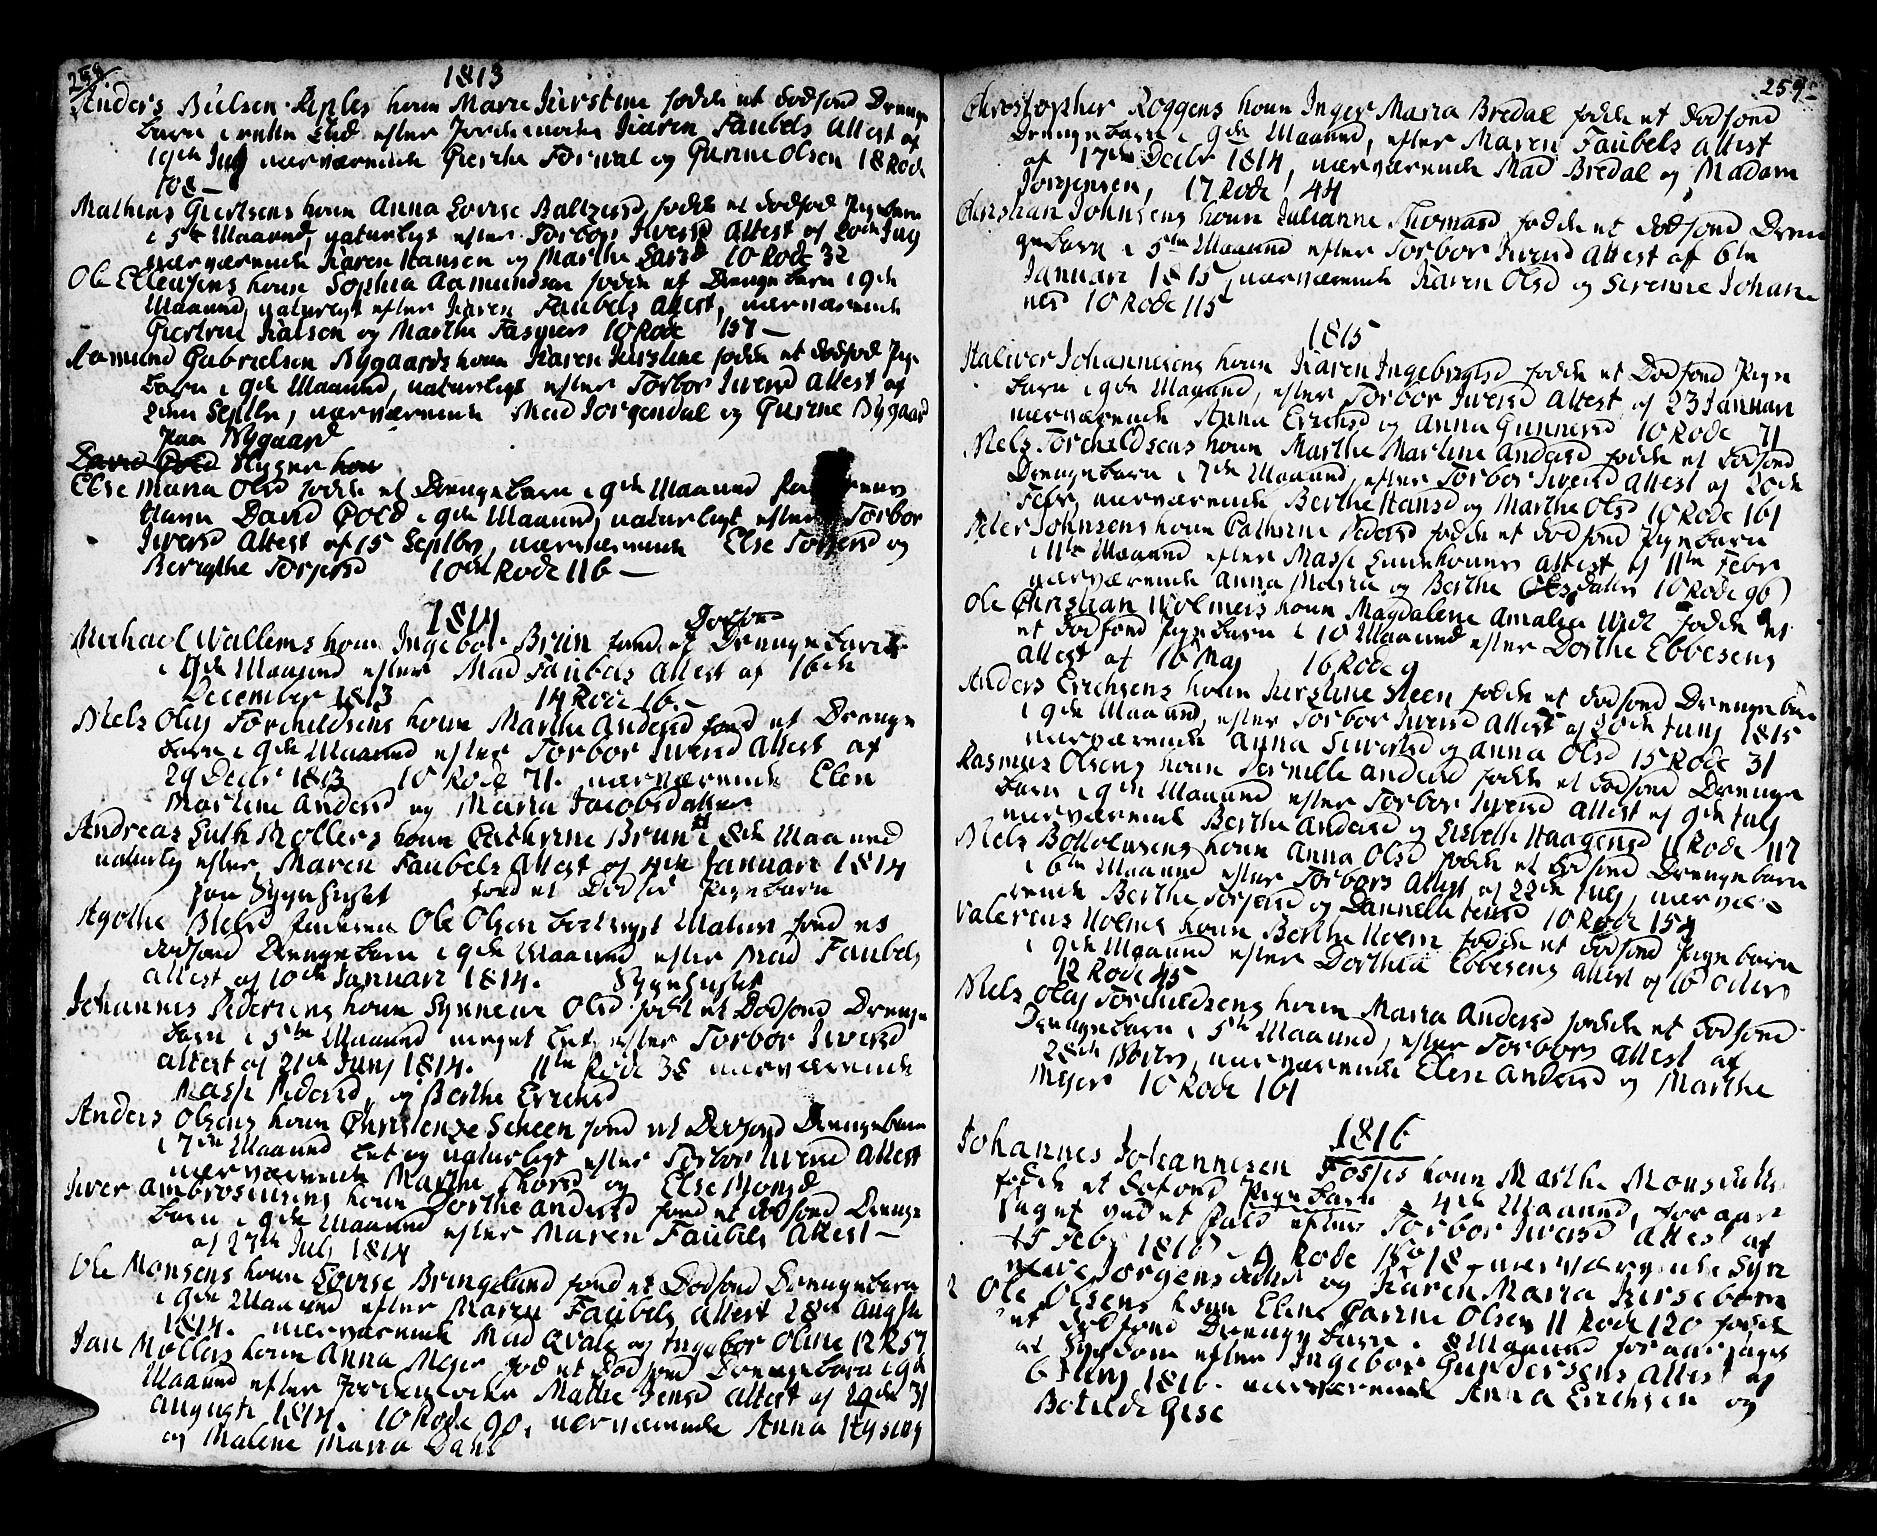 258.
1813
Anders Bielsen Riples konn Marie Kirstine fødde et dødfød Drenge
barn i rette tid efter Jordemoder Karen Faubels Attest af
19de July nærværende Giertrue Torival og Gurine Olsen 18 Rode
108 —
Mathias Giertsens konn Anna Lovise Baltzersd fødde et dødfød Pigebarn
i 5te Maaned, naturligt efter Torbor Iversd Attest af 20de July
nærværende Karen Hansen og Marthe Larsd 10 Rode 32
Ole Ellewsens konn Sophia Aamundsen fødde et Drengebarn i 9de
Maaned, naturligt efter Karen Faubels Attest, nærværende
Giertrue Karson og Marthe Caspers 10 Rode 157 —
Aamund Gabrielsen Nygaards konn Karen Kirstine fødde et dødfød Pige
barn i 9de Maaned, naturligt efter Torbor Iversd Attest af
Septbr, nærværende Mad Jorgendal og Gurine Nygaard
paa Nygaard
David Gold Ryger kone
Else Maria Olsd fødde et Drengebarn i 9de Maaned
Navn David Gold i 9de Maaned, naturligt efter Torbor
Iversd Attest af 15 Septbr, nærværende Else Torjersd og
Berthe Torjersd 10de Rode 116 —
1814
Dødfød
Michael Wallems konn Ingebor Brun fød et Drengebarn
i 9de Maaned efter Mad Faubels Attest af 16de
December 1813 14 Rode 16. —
Niels Olaj Torchildsens konn Marthe Andersd fød et Drenge
barn i 9de Maaned efter Torbor Iversd Attest af
29 Decbr 1813 10 Rode 71. nærværende Elen
Martine Andersd og Maria Jacobsdatter
Andreas Luth Møllers konn Cathrine Brun i 8de Maaned
naturlig efter Maren Faubels Attest af 4de Januari 1814
paa Sygehuset fød et Dødfød Pigebarn
Agothe Nielsd faderen Ole Olsen fød et
dødfød Drengebarn i 9de Maaned efter Mad Faubels
Attest af 10de Januari 1814. Sygehuset
Johannes Pedersens konn Synneve Olsd født et Dødfød Drenge
barn i 5te Maaned meget let, efter Torbor Iversd
Attest af 21de Junj 1814. 11te Rode 38 nærværende
Massi Pedersd, og Berthe Erichsd
Anders Olsens konn Christenze Scheen fød et Dødfød Drengebarn
i 7de Maaned let og naturligt efter Torbor Iversd Attest
nærværende Marthe Thorsd og Else Monsd
Iver Ambrosiusens konn Dorthe Andersd fød et dødfød Drenge
barn i 9de Maaned efter Maren Faubels Attest —
af 27de July 1814
Ole Monsens konn Lovise Bringeland fød et Dødfød Drengebarn
i 9de Maaned efter Maren Faubels Attest 28de Augsti
1814. nærværende Mad Qvale og Ingebor Oline 12 R 57
Jan Møllers konn Anna Mejer fød et Dødfød Drengebarn i 9de
Maaned efter Jordemoder Malle Jensd Attest af 29de 31
Augusti 1814. 10 Rode 90, nærværende Anna Hysing
og Malene Maria Dahl
259.
Christopher Roggens konn Inger Maria Bredal fødde et dødfød
Drengebarn i 9de Maaned, efter Maren Faubels Attest
af 17de Decbr 1814, nærværende Mad Bredal og Madam
Jorgensen, 17 Rode 44
Christian Johnsens konn Julianne Thomasd fødde et dødfød Dren
gebarn i 5te Maaned efter Torbor Iversd Attest af 6te
Januari 1815, nærværende Karen Olsd og Serenne Johan
nesd 10 Rode 115
1815
Haliver Johannesens konn Karen Ingebrigtsd fødde et Dødfød Pige
barn i 9de Maaned, efter Torbor Iversd Attest af 23 Januari
nærværende Anna Erichsd og Anna Gunnersd 10 Rode 71
Niels Torchildsens konn Marthe Martine Andersd fødde et Dødfød
Drengebarn i 7de Maaned, efter Torbor Iversd Attest af 20de
Febr, nærværende Berthe Hansd og Marthe Olsd 10 Rode 161
Peter Johnsens konn Cathrine Pedersd fødde et dødfød Pigebarn
i 11te Maaned efter Massi Attest af 11te Febr
nærværende Anna Maria og Berthe Olsdatter 10 Rode 96
Ole Christian Wolmers konn Magdalene Amalia fødde et
et dødfød Pigebarn i 10 Maaned efter Dorthe Ebbesens
Attest af 16 Maj 16 Rode 9
Anders Erichsens konn Kirstine Steen fødde et dødfød Drengebarn
i 9de Maaned, efter Torbor Iversd Attest af 20de Junj 1815
nærværende Anna Siversd og Anna Olsd 15 Rode 31
Rasmus Olsens konn Pernille Andersd fødde et dødfød Drenge
barn i 9de Maaned efter Torbor Iversd Attest af 9de July
nærværende Berthe Andersd og Lisbeth Haagensd 11 Rode 117
Niels Bottolvsens konn Anna Olsd fødde et dødfød Drengebarn
i 6te Maaned efter Torbors Attest af 22de July, nærvæ
rende Berthe Torjersd og Dannelle Iversd 10 Rode 154
Valerius Holms konn Berthe Holm fødde et dødfød Pigebarn
i 9de Maaned efter Dorthea Ebbesens Attest af 16 Octbr
12 Rode 45
Niels Olaj Torchildsens konn Maria Andersd fødde et dødfød
Drengebarn i 5te Maaned, efter Torbors Attest af
28de Novbr, nærværende Elen Andersd og Marthe
Mejer 10 Rode 161
1816
Johannes Johannesen Fosses konn Marthe Monsdatter
fødde et døfød Pigebarn i 4de Maaned, foraar
saget ved et Fald efter Torbor Iversd Attest af
15 Feb. 1816, 9 Rode No 18 — nærværende Syn
neve Jørgensdatter og Karen Maria Kirsebom
Ole Olsens konn Elene Carine Olsen 11 Rode 120 fødde
et dødfød Drengebarn i 8 Maaned foraarsaget
af Sygdom efter Ingebor Gundersens Attest af
6 Junj 1816. nærværende Anna Erichsen og
Botilde Giese